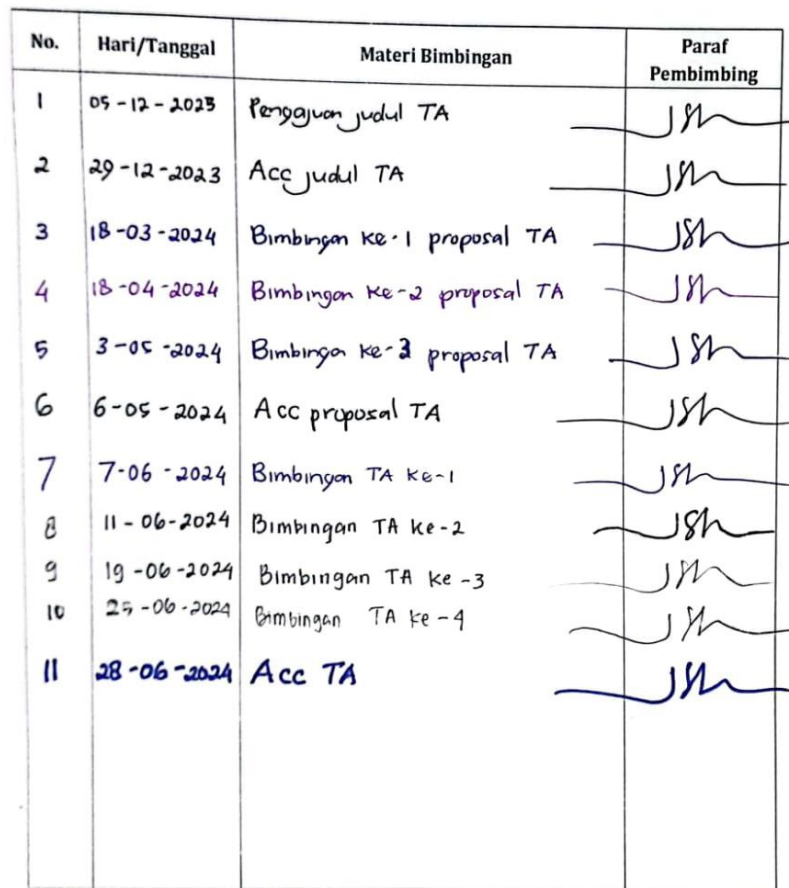 No. Hari/Tanggal Materi Bimbingan Paraf Pembimbing
1 05-12-2023 Pengajuan judul TA
2 29-12-2023 Acc judul TA
3 18-03-2024 Bimbingan ke-1 proposal TA
4 18-04-2024 Bimbingan ke-2 proposal TA
5 3-05-2024 Bimbingan ke-3 proposal TA
6 6-05-2024 Acc proposal TA
7 7-06-2024 Bimbingan TA ke-1
8 11-06-2024 Bimbingan TA ke-2
9 19-06-2024 Bimbingan TA ke-3
10 25-06-2024 Bimbingan TA ke-4
11 28-06-2024 Acc TA